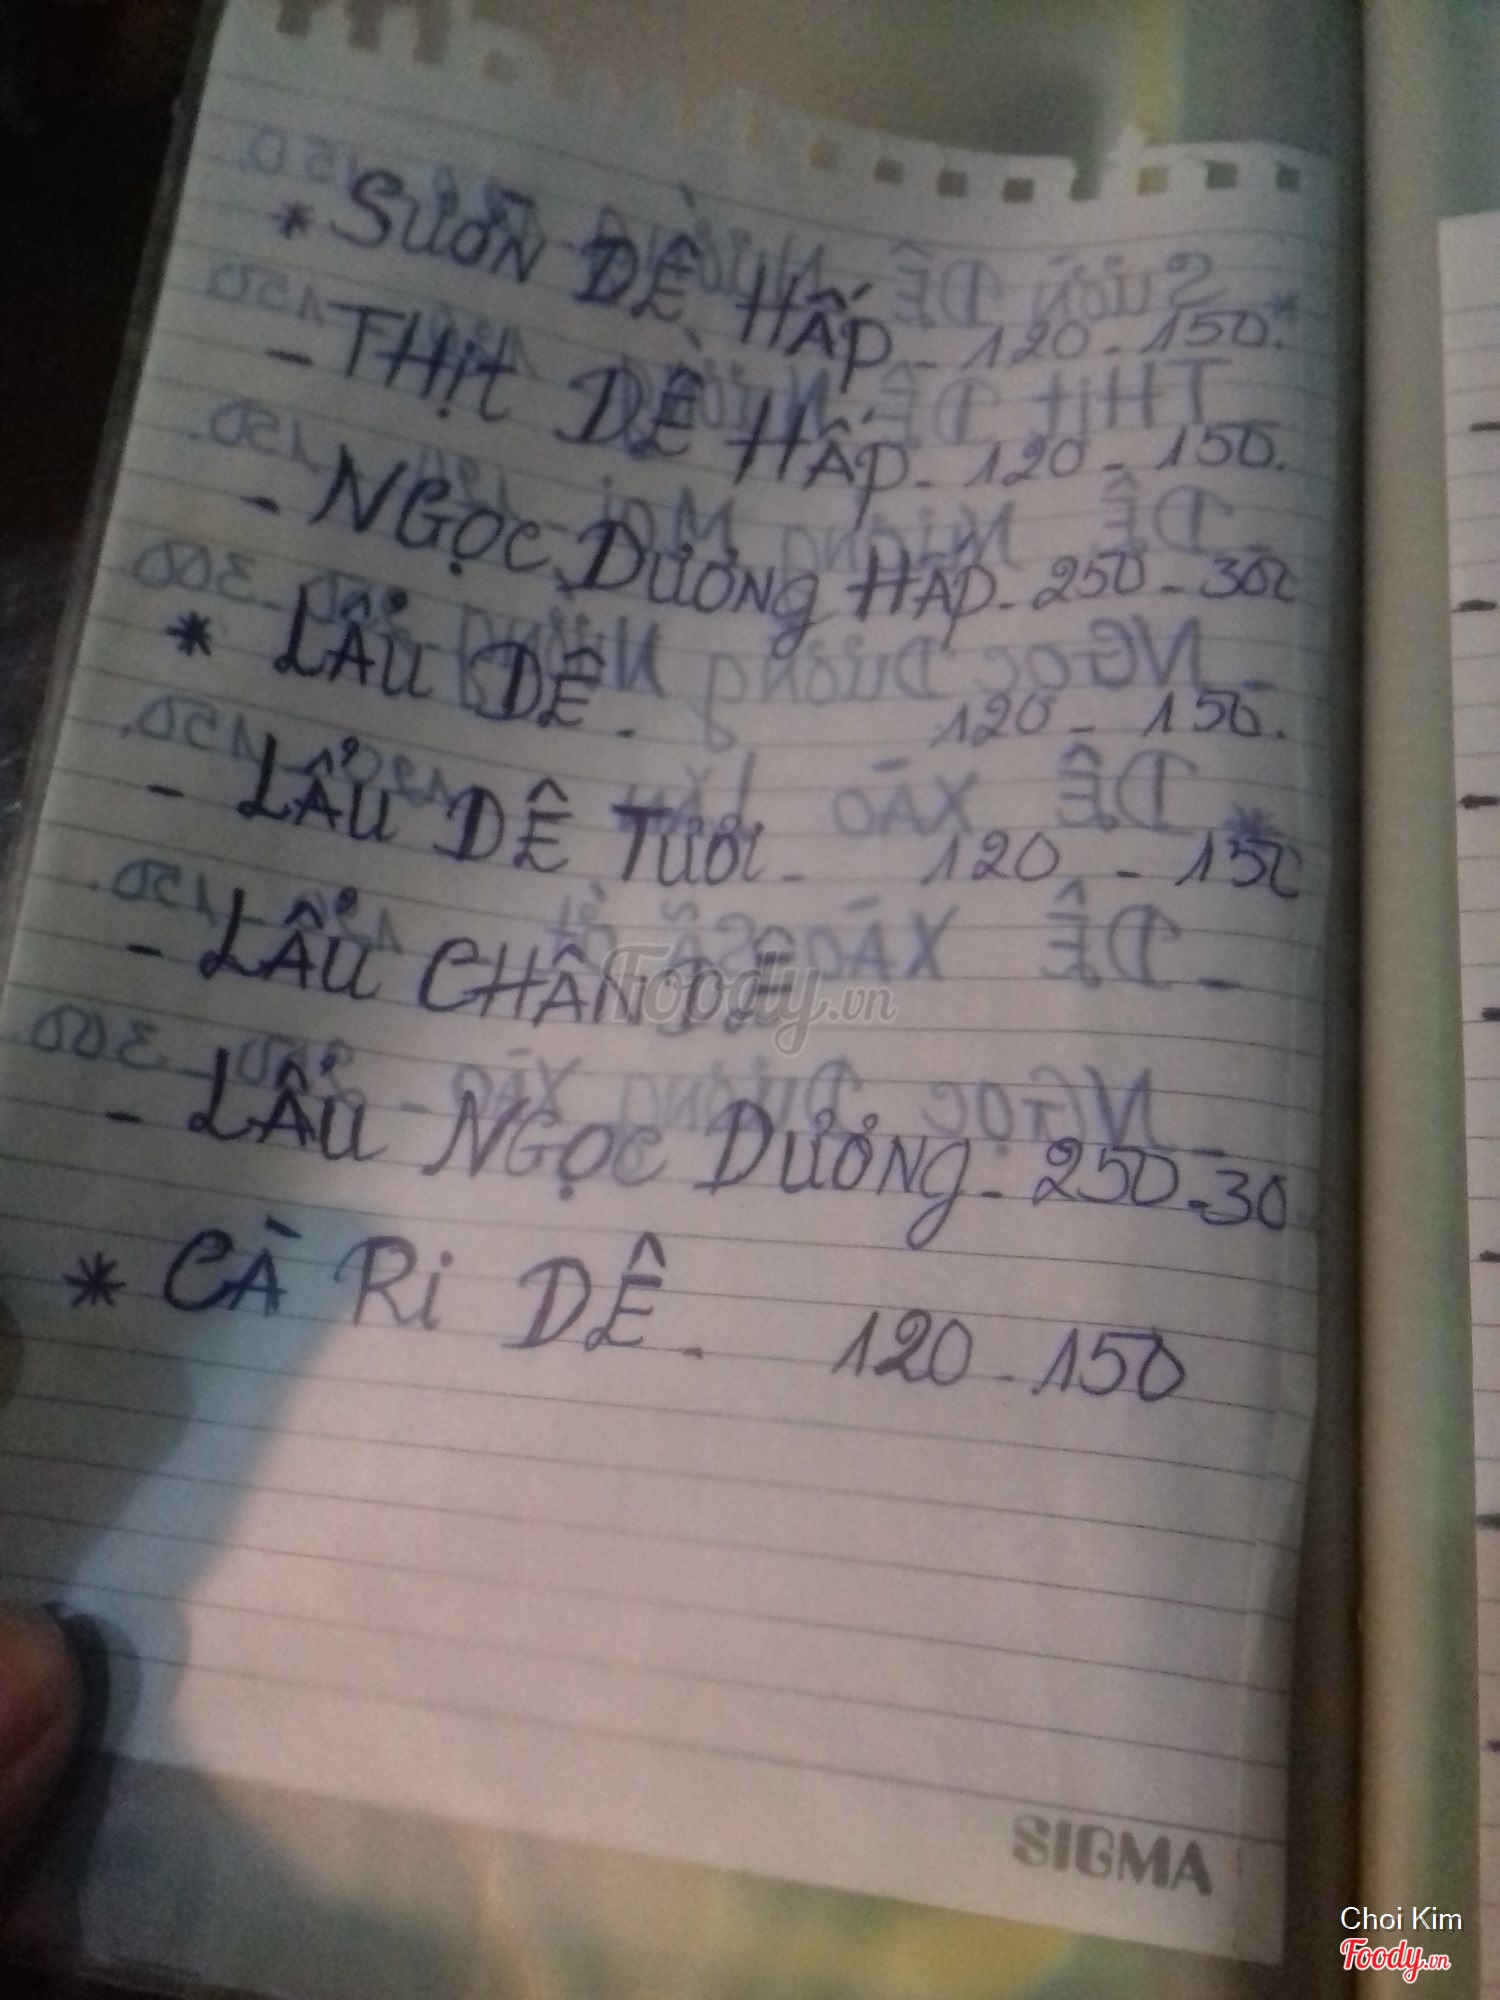 * SƯỜN DÊ HẤP - 120 - 150.
- THỊT DÊ HẤP - 120 - 150.
- NGỌC DƯƠNG HẤP - 250 - 300
* LẨU DÊ. 120 - 150.
- LẨU DÊ TƯƠI - 120 - 150
- LẨU CHÂN DÊ
- LẨU NGỌC DƯƠNG - 250 - 30
* CÀ RI DÊ - 120 - 150
Foody.vn
SIGMA
Choi Kim
Foody.vn